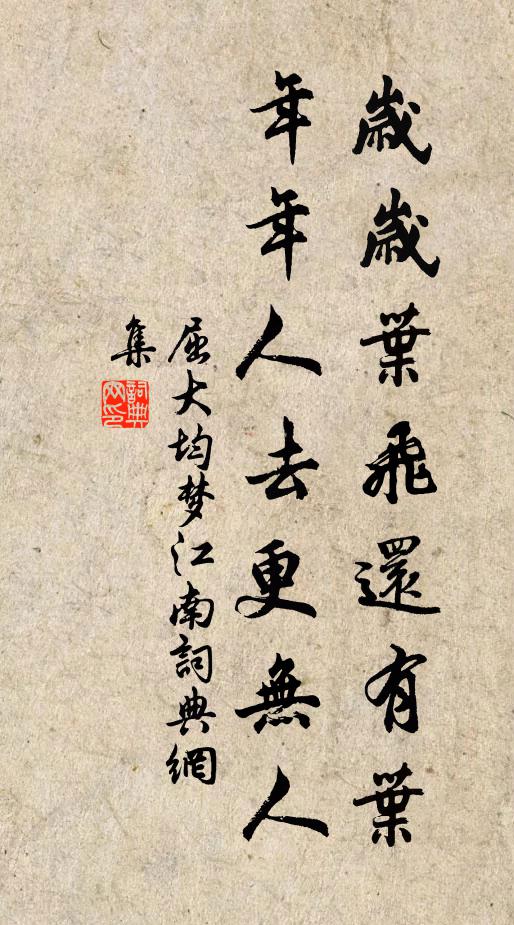 歲歲葉飛還有葉
年年人去更無人
屈大均梦江南詞典網
集
詞典
网印